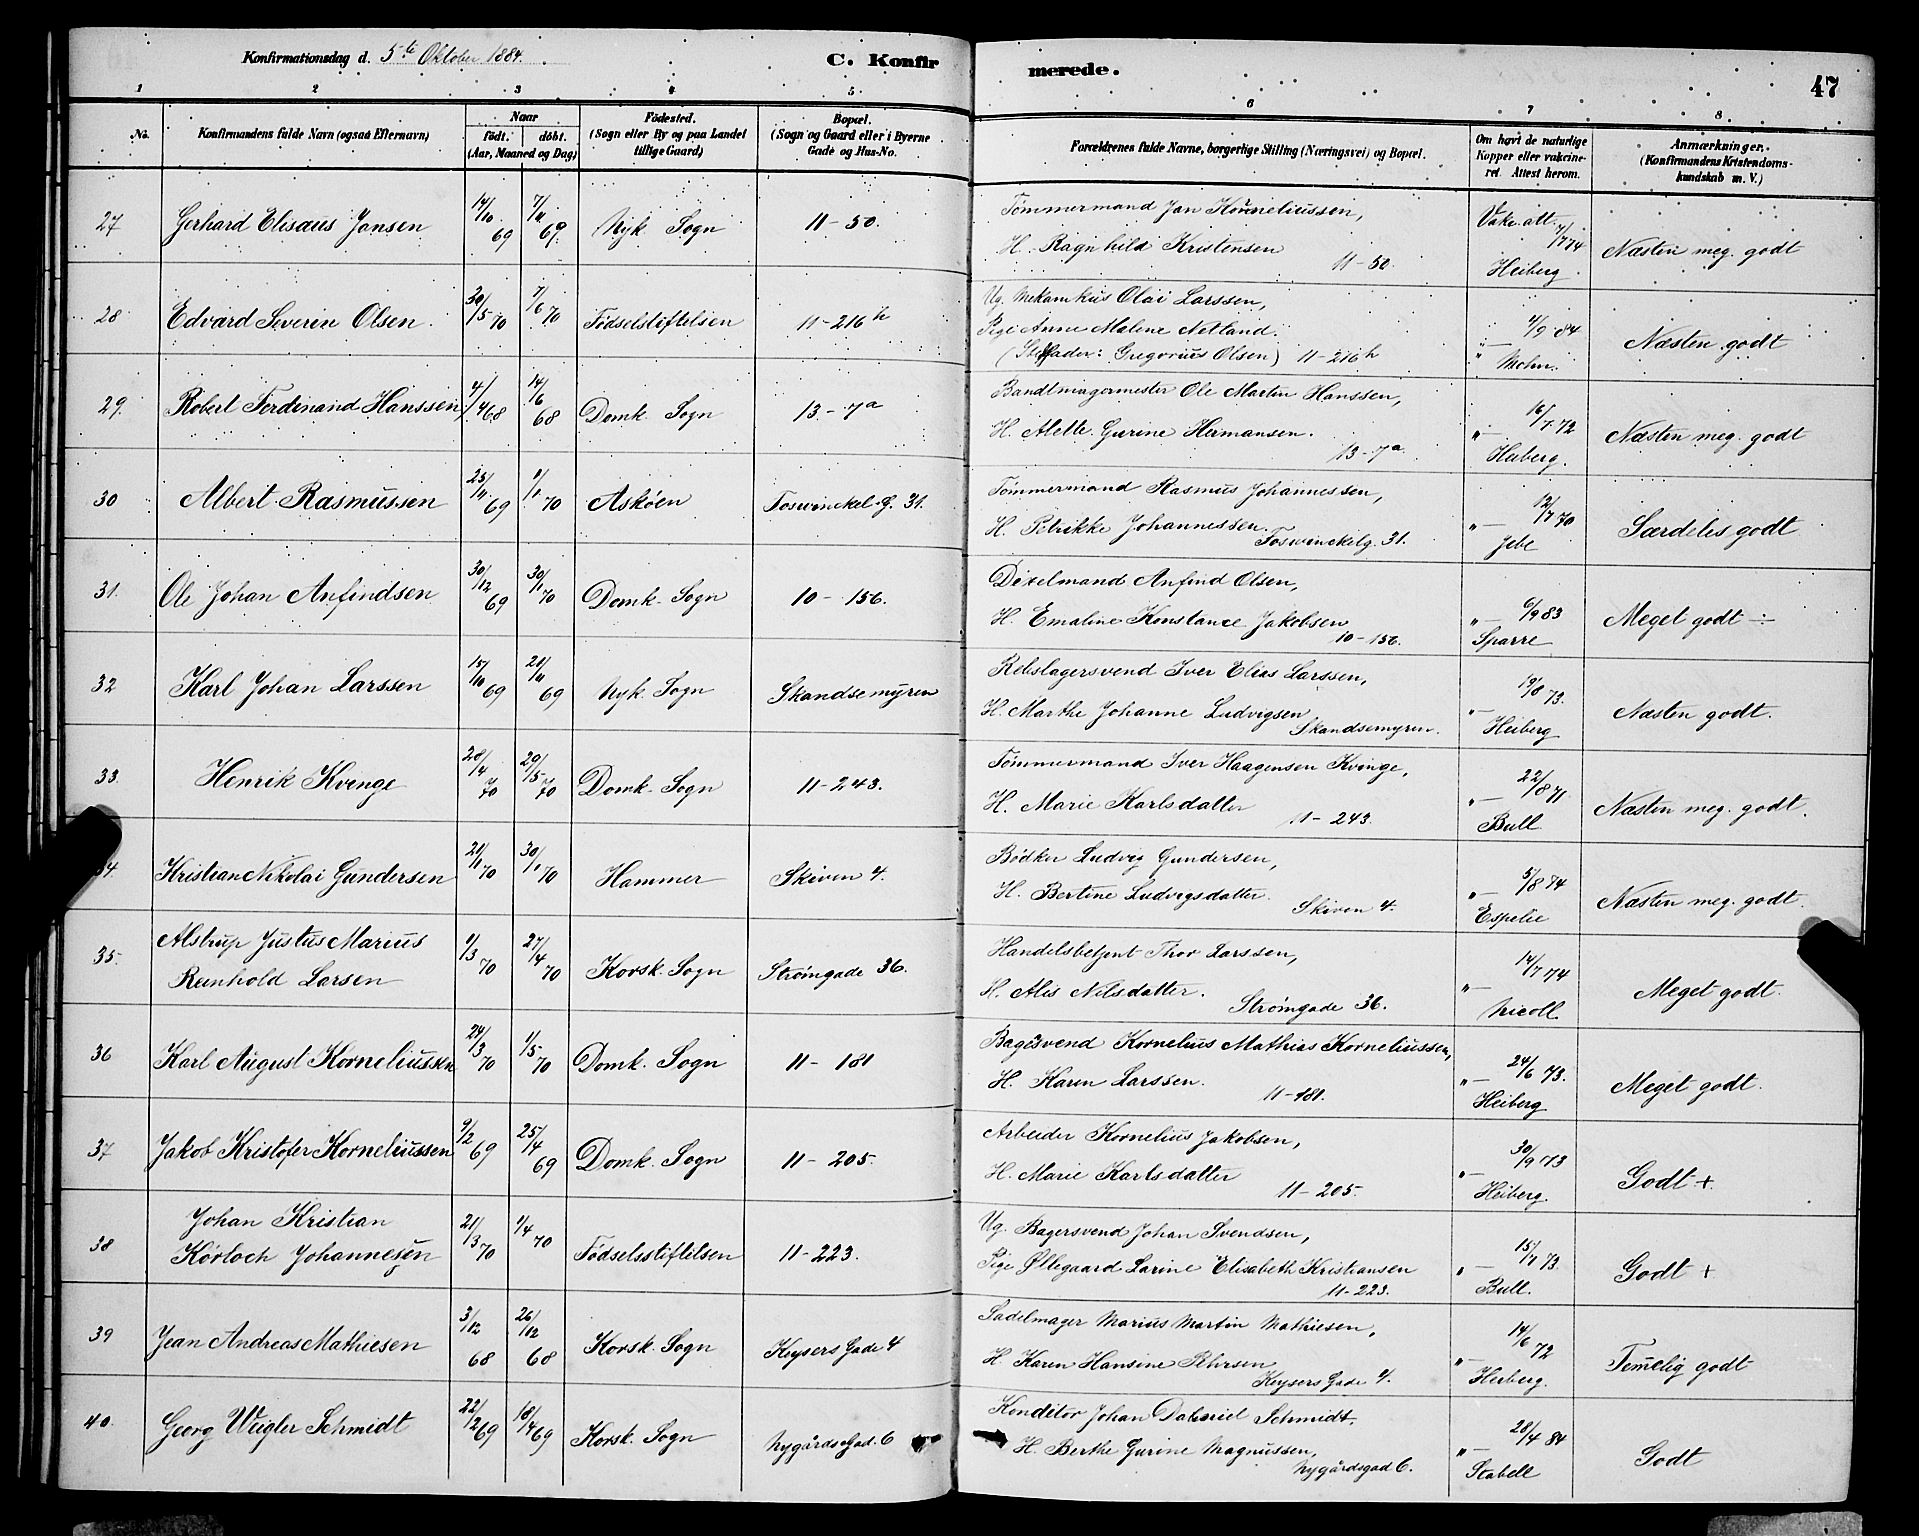 Konfirmationsdag d. 5te Oktober 1884.
C. Konfirmerede.
47
1 2 3 4 5 6 7 8
No.
Konfirmandens fulde Navn (ogsaa Efternavn)
Naar
født. døbt.
(Aar, Maaned og Dag)
Fødested.
(Sogn eller By og paa Landet tillige Gaard)
Bopæl.
(Sogn og Gaard eller i Byerne Gade og Hus-No.
Forældrenes fulde Navne, borgerlige Stilling (Næringsvei) og Bopæl.
Om havt de naturlige Kopper eller vakcineret Attest herom.
Anmærkninger.
(Konfirmandens Kristendomskundskab m. V.)
27 Gerhard Elisæus Jansen 14/10 69 7/11 69 Nyk. Sogn 11-50.
Tømmermand Jan Korneliussen,
H. Ragnhild Kristensen 11-50.
Vakc. att. 7/7 74 Heiberg.
Næsten meg. godt
28 Edvard Severin Olsen. 30/5 70 7/6 70 Fødselstiftelsen 11-216h
Ug. Mekanikus Olai Larssen,
Pige Anne Malene Netland.
(Stiffader: Gregorius Olsen) 11-216h
" — 4/9 84 " Mohn.
Næsten godt
29. Robert Ferdinand Hanssen 4/4 68 14/6 68 Domk. Sogn 13-7a
Bandtmagermester Ole Martin Hanssen,
H. Alette Gurine Hermansen. 13-7a.
" — 16/7 72 Heiberg.
Næsten meg. godt
30 Albert Rasmussen 25/11 69 1/1 70 Askøen Foswinckel-G. 31.
Tømmermand Rasmus Johannessen,
H. Petrikke Johannessen. Foswinckelg. 31.
" — 12/7 70 Jebe
Særdeles godt
31. Ole Johan Anfindsen 30/12 69 30/1 70 Domk. Sogn 10-156.
Dixelmand Anfind Olsen,
H. Emaline Konstance Jakobsen 10-156.
" — 6/9 83 Sparre
Meget godt ÷
32 Karl Johan Larssen 15/10 69 21/11 69 Nyk. Sogn Skandsemyren
Rebslagersvend Iver Elias Larssen,
H. Marthe Johanne Ludvigsen Skandsemyren.
" — 19/8 73. Heiberg
Næsten godt.
33. Henrik Kvinge 28/4 70 29/5 70 Domk. Sogn 11-243.
Tømmermand Iver Haagensen Kvinge,
H. Marie Karlsdatter 11-243.
" — 22/8 71 Bull.
Næsten meg. godt.
34. Kristian Nikolai Gundersen 21/1 70 30/1 70 Hammer Skiven 4.
Bødker Ludvig Gundersen,
H. Bertine Ludvigsdatter. Skiven 4.
" — 5/8 74 Espelie
Næsten meg. godt.
35. Alstrup Justus Marius
Reinhold Larsen 1/3 70 27/4 70 Korsk. Sogn Strømgade 36.
Handelsbetjent Thor Larssen,
H. Alis Nilsdatter. Strømgade 36.
" — 14/7 74 Nicoll.
Meget godt.
36 Karl August Korneliussen 24/3 70 1/5 70 Domk. Sogn 11-181
Bagersvend Kornelius Mathias Korneliussen,
H. Karen Larssen. 11-181.
" — 24/6 73. Heiberg
Meget godt.
37 Jakob Kristofer Korneliussen 9/2 69 25/4 69 Domk. Sogn 11-205.
Arbeider Kornelius Jakobsen,
H. Marie Karlsdatter 11-205.
" — 30/9 73 Heiberg.
Godt +.
38 Johan Kristian
Korloch Johannesen 21/3 70 1/4 70 Fødselsstiftelsen 11-223.
Ug. Bagersvend Johan Svendsen,
Pige Øllegaard Larine Elisabeth Kristiansen
11-223.
" — 15/7 73. Bull.
Godt +
39 Jean Andreas Mathiesen 3/12 68 26/12 68 Korsk. Sogn Keysers Gade 4
Sadelmager Marius Martin Mathiesen,
H. Karen Hansine Pehrsen Keysers Gade 4.
" — 14/6 72 Heiberg.
Temelig godt
40. Georg Weigler Schmidt 22/2 69 18/4 69 Korsk. Sogn Nygårdsgad. 6
Konditor Johan Dabriel Schmidt,
H. Berthe Gurine Magnussen, Nygårdsgad 6.
" — 28/4 84 Stabell
Godt